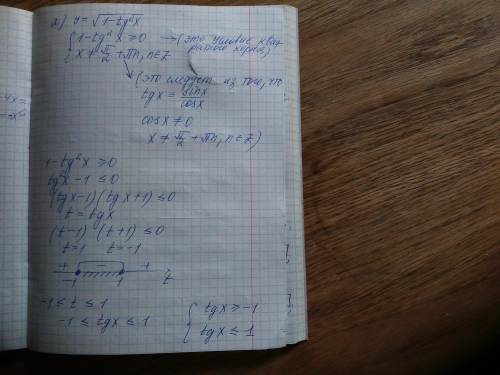 2) y = √(1-tg²x)
{ 1-tg²x ≥ 0 → (это условие квад-
ратного корня)
x ≠ π/2 + πn, n∈Z
(это следует из того, что
tgx = sinx/cosx
cosx ≠ 0
x ≠ π/2 + πn, n∈Z)
1-tg²x ≥ 0
tg²x - 1 ≤ 0
(tgx-1)(tgx+1) ≤ 0
t = tgx
(t-1) (t+1) ≤ 0
t=1 t=-1
+ - +
-1 1 t
-1 ≤ t ≤ 1
-1 ≤ tgx ≤ 1
{ tgx ≥ -1
tgx ≤ 1